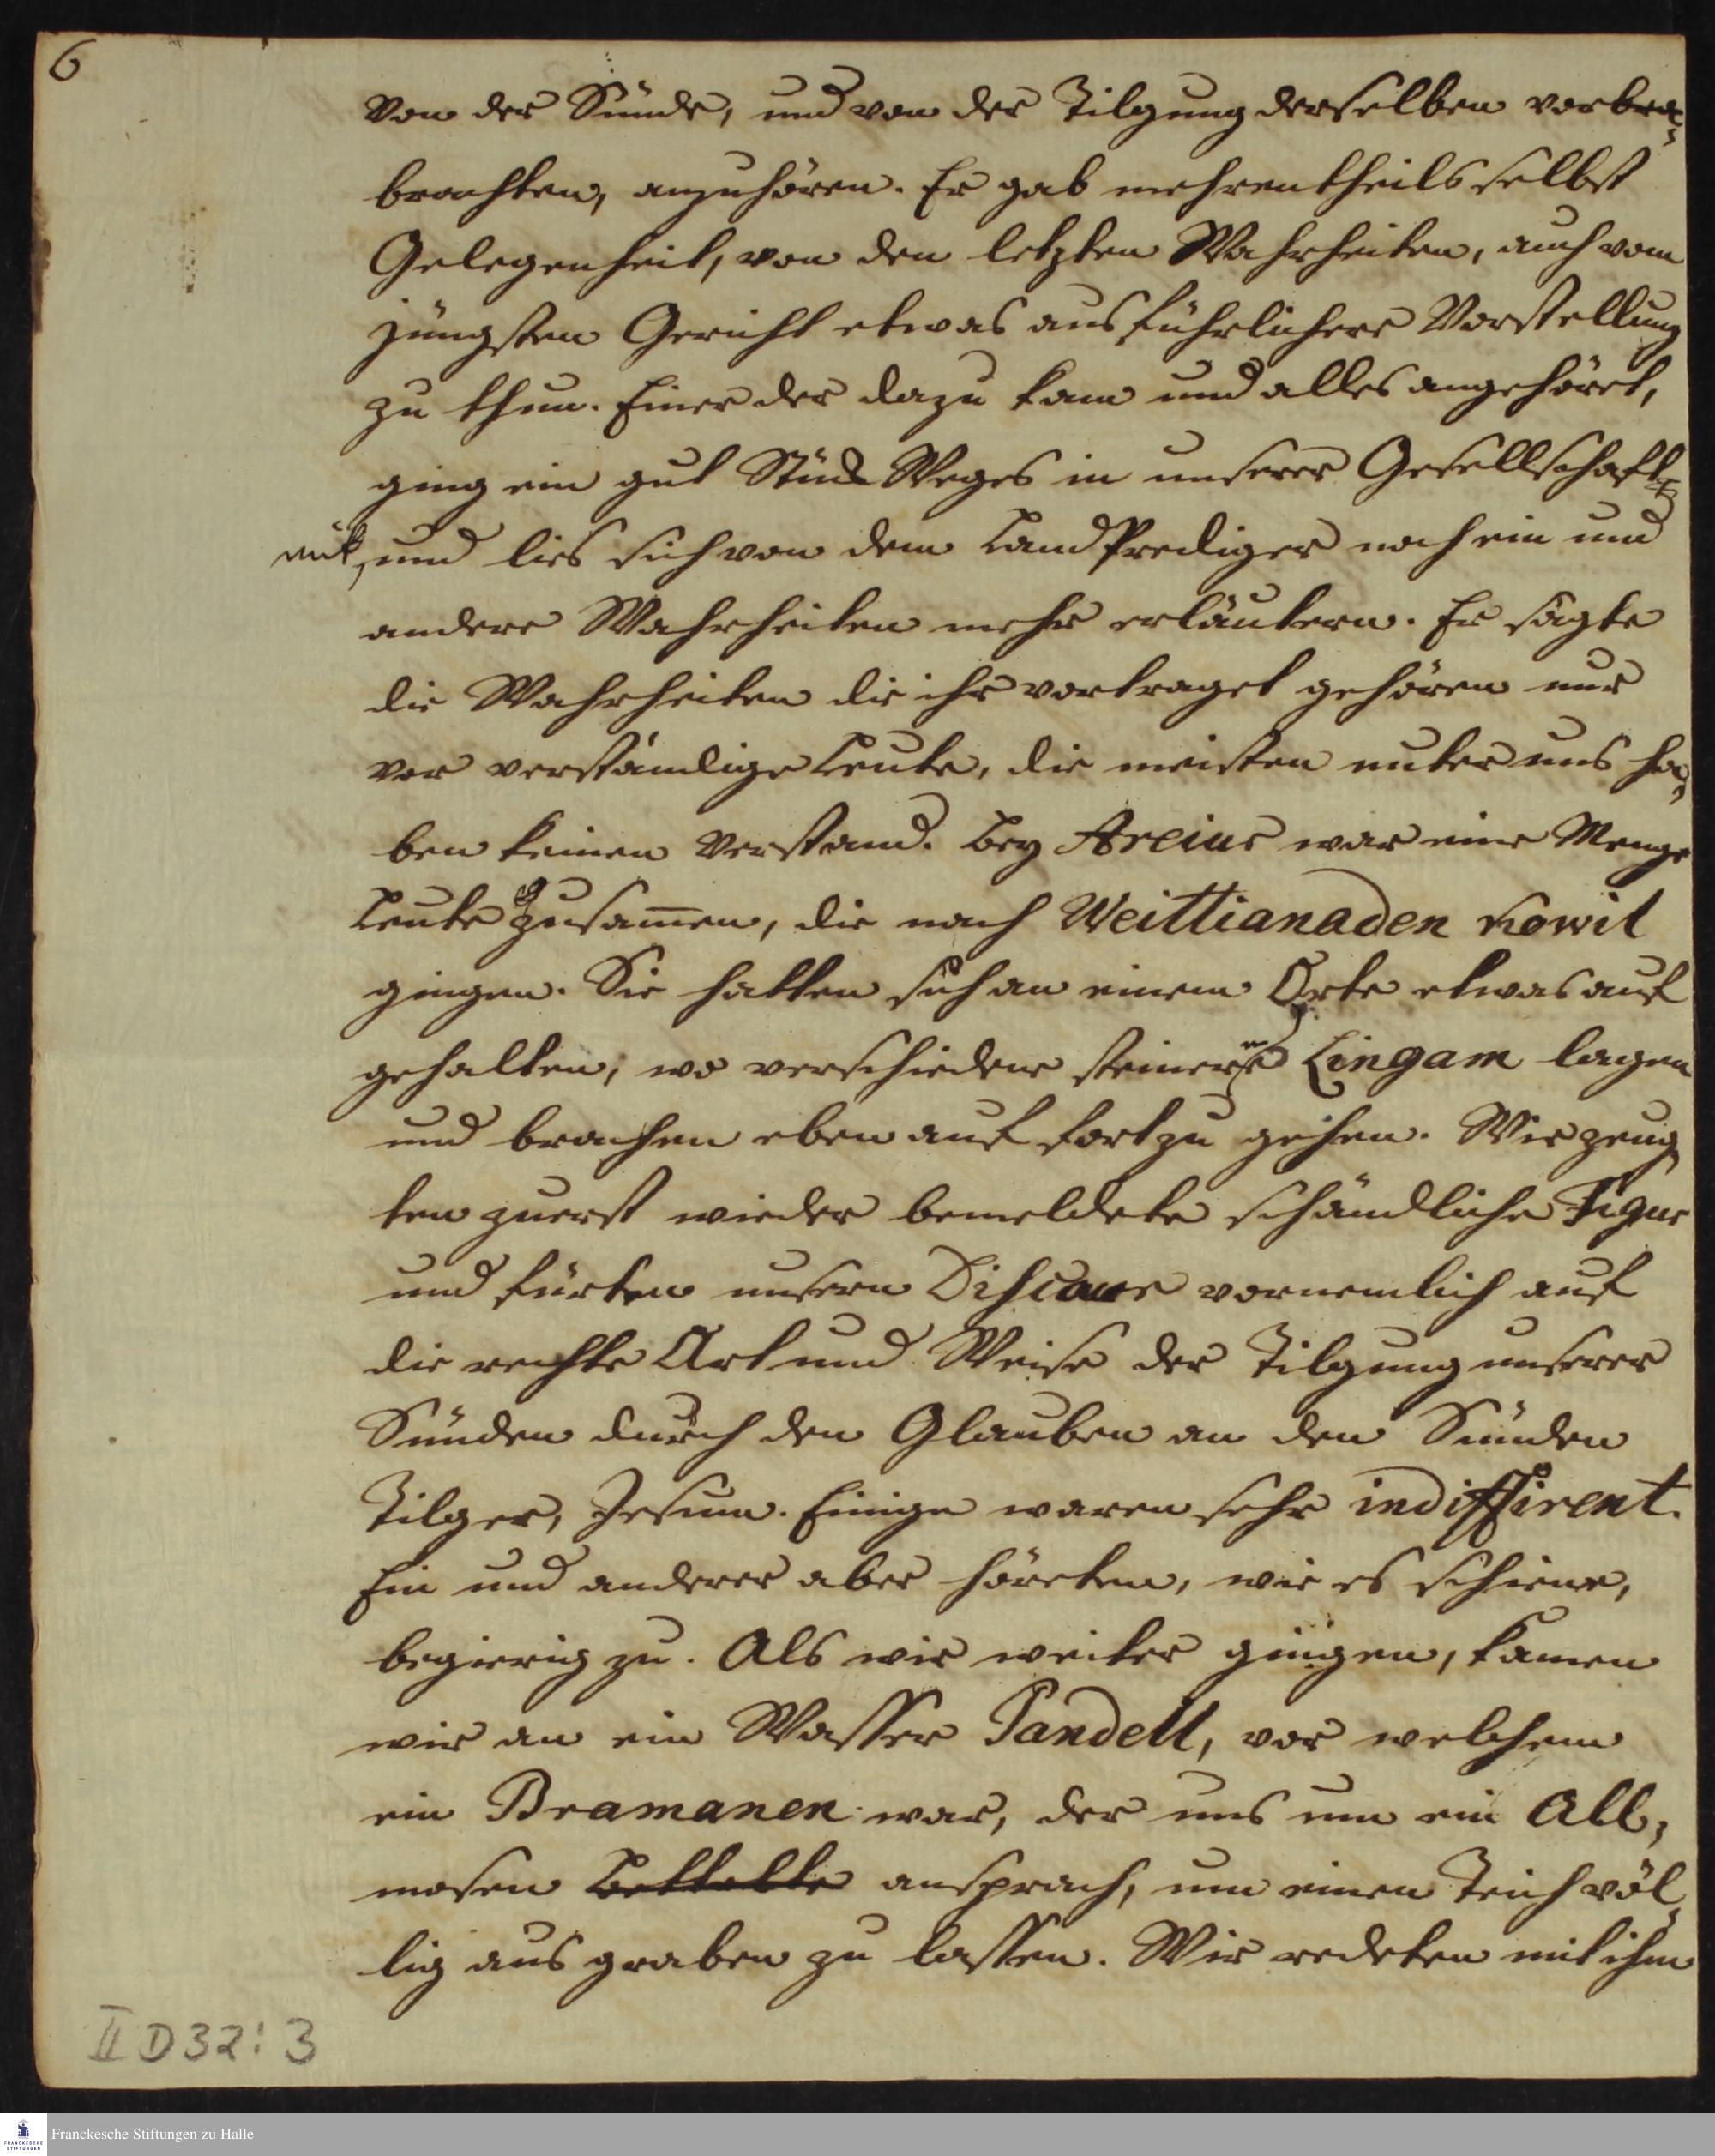 6
von der Sünde, und von der Tilgung derselben vorbra-
brachten, anzuhören. Er gab mehrentheils selbst
Gelegenheit, von den letzten Wahrheiten, auch vom
jüngsten Gericht etwas ausführlichere Vorstellung
zu thun. Einer der dazu kam und alles angehöret,
ging ein gut Stück Weges in unserer Gesellschaft
mit, und lies sich von dem LandPrediger noch ein und
andere Wahrheiten mehr erläutern. Er sagte
die Wahrheiten die ihr vortraget gehören nur
vor verständige Leute, die meisten unter uns ha-
ben keinen Verstand. Bey Areius war eine Menge
Leute zusam̄en, die nach Weittianaden Kowil
gingen. Sie hatten sich an einem Orte etwas auf
gehalten, wo verschiedene steinerne Lingam lagen
und brachen eben auf fortzu gehen. Wir zeug
ten zuerst wieder bemeldete schändliche Figur
und fürten unsern Discour vornemlich auf
die rechte Art und Weise der Tilgung unserer
Sünden durch den Glauben an den Sünden
Tilger, Jesum. Einige waren sehr indifferent.
Ein und anderer aber höreten, wie es schiene,
begierig zu. Als wir weiter gingen, kamen
wir an ein Wasser Pandell, vor welchem
ein Bramanen war, der uns um ein All-
mosen bettelte ansprach, um einen Teich völ-
lig aus graben zu lassen. Wir redeten mit ihm
II D 32 : 3
Franckesche Stiftungen zu Halle